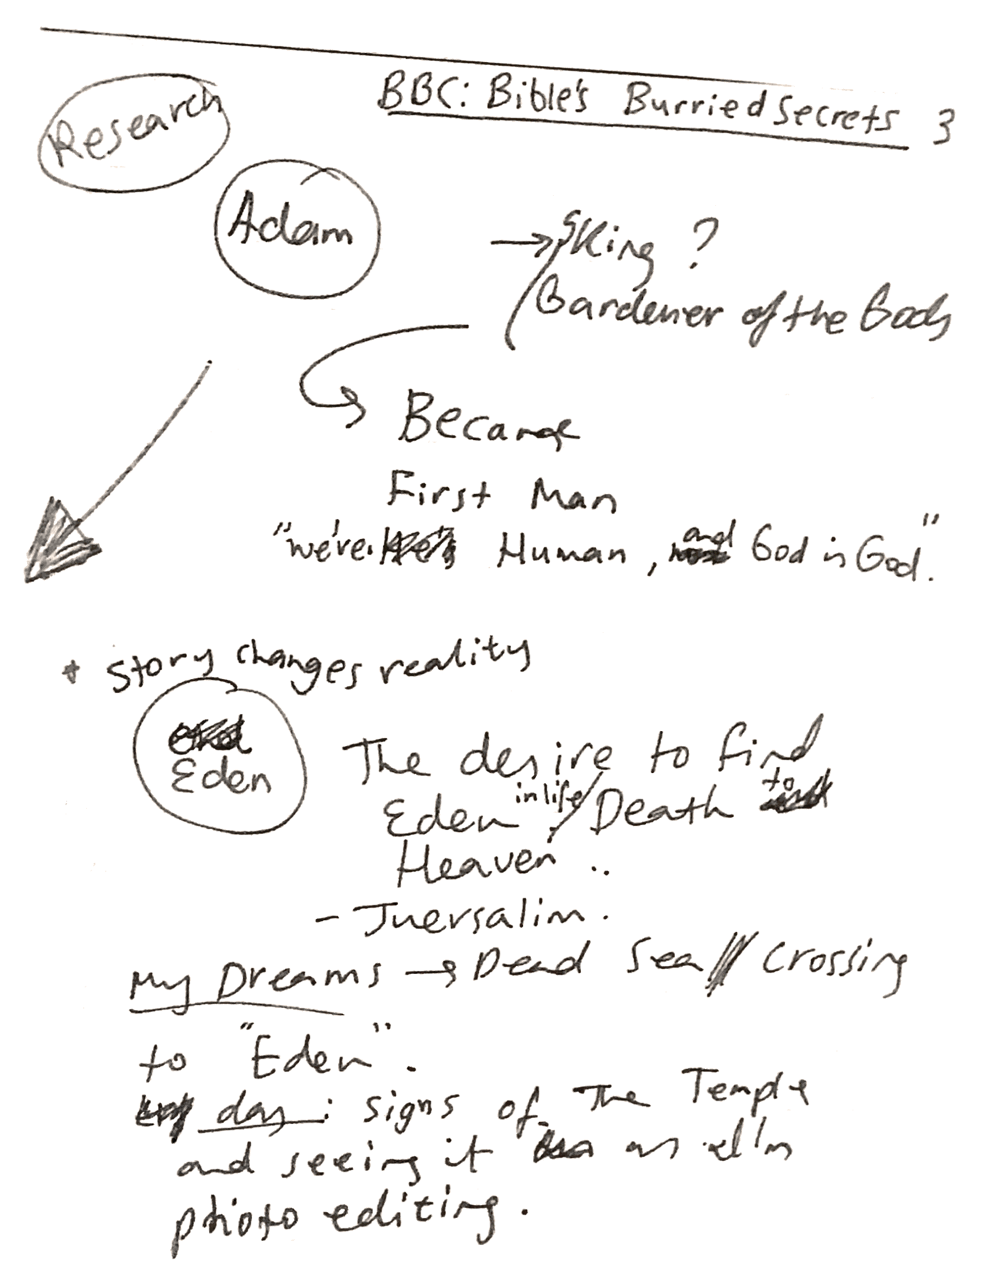 BBC: Bible's Burried Secrets 3
Research
Adam
→ King ?
Gardener of the Gods
Became
First Man
"we're Human, and God is God."
+ Story changes reality
Eden
The desire to find
Eden in life / Death to
Heaven ..
- Juersalim.
My Dreams → Dead Sea // Crossing
to "Eden".
day: signs of The Temple
and seeing it as I'm
photo editing.